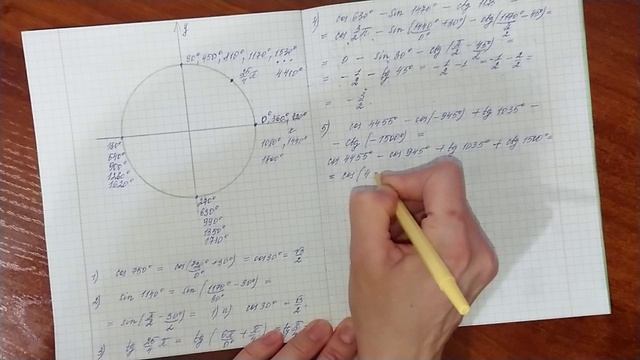 y
90°, 450°, 810°, 1170°, 1530°
4410°
25/4 π
0°, 360°, 720°
x
1080°, 1440°
1800°
180°
540°
900°
1260°
1620°
270°
630°
990°
1350°
1710°
1) cos 750° = cos(720°/0° + 30°) = cos 30° = √3/2
2) sin 1140° = sin(1170°/90° - 30°) =
= sin(π/2 - 30°) = 1) u) cos 30° = √3/2.
3) tg 25/4 π = tg (6π/0° + π/4) = tg π/
4) cos 630° - sin 1470° - ctg 112
= cos 3/2 π - sin(1440°/0° + 30°) - ctg(1170° - 45°) =
= 0 - sin 30° - ctg(π/2 - 45°) =
= - 1/2 - tg 45° = - 1/2 - 1 = - 1/2 - 2/2 =
= - 3/2.
5) cos 4455° - cos(-945°) + tg 1035° -
- ctg(-1500°) =
cos 4455° - cos 945° + tg 1035° + ctg 1500° =
= cos(4